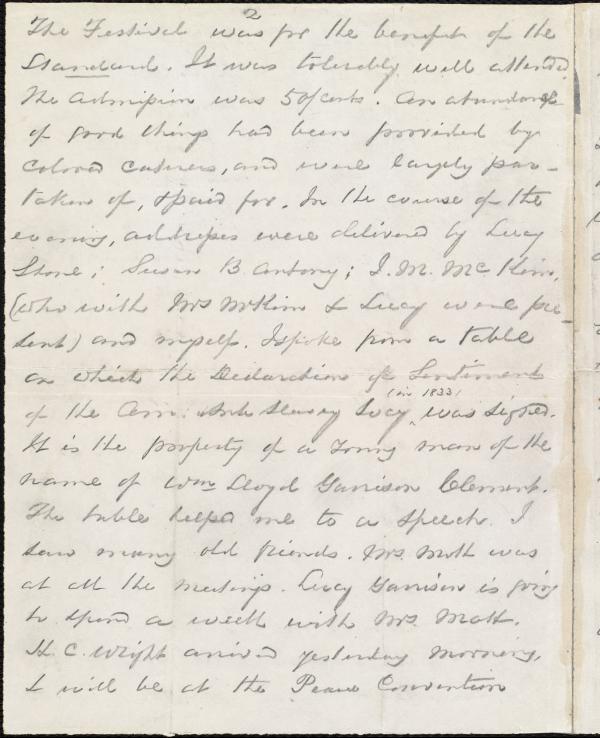 2
The Festival was for the benefit of the
Standard. It was tolerably well attended.
The admission was 50/cents. An abundance
of good things had been provided by
colored caterers, and were largely par-
taken of, & paid for. In the course of the
evening, addresses were delivered by Lucy
Stone; Susan B Antony; J. M. McKim,
(who with Mrs McKim & Lucy were pre-
sent) and myself. I spoke from a table
on which the Declaration of Sentiments
(in 1833)
of the Am: Anti Slavery Socy, was signed.
It is the property of a young man of the
name of Wm Lloyd Garrison Clement.
The table helped me to a speech. I
saw many old friends. Mrs. Mott was
at all the meetings. Lucy Garrison is going
to spend a week with Mrs. Mott.
H. C. Wright arrived yesterday morning,
& will be at the Peace Convention